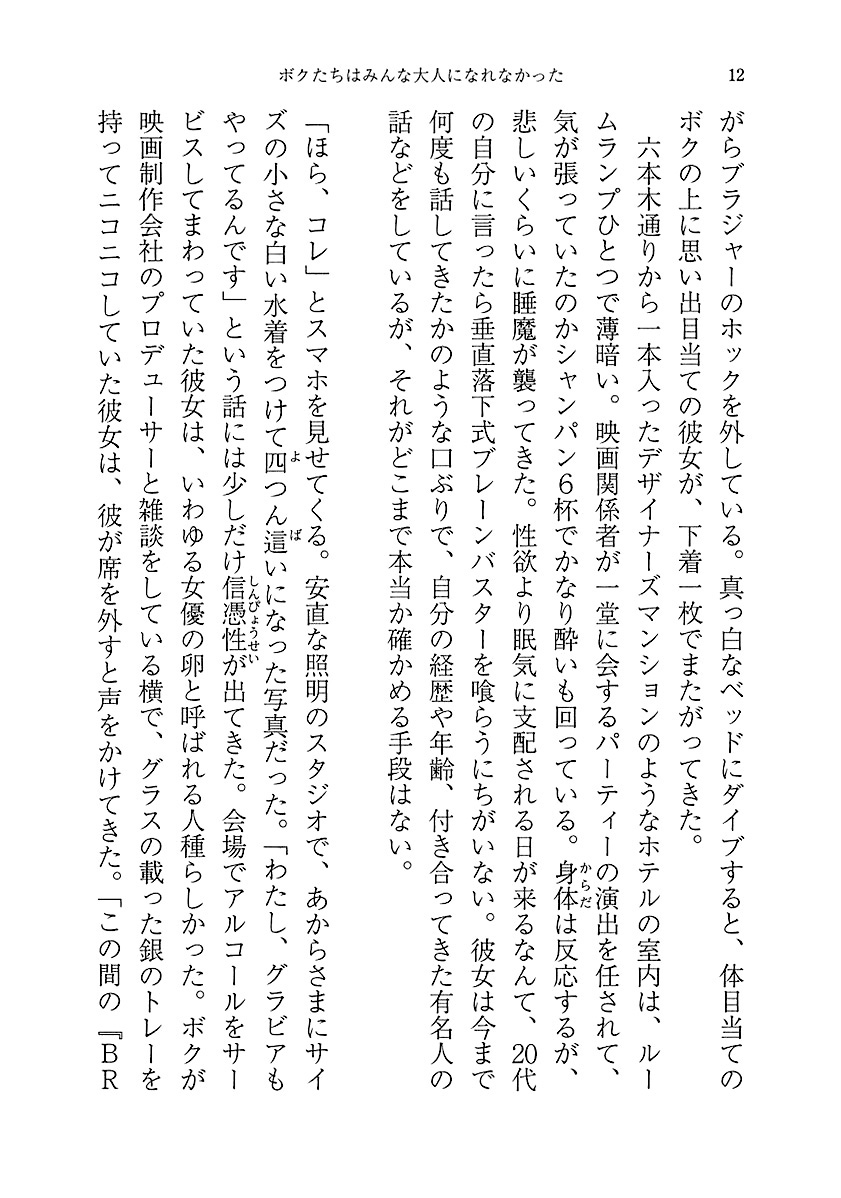 ボクたちはみんな大人になれなかった
12
がらブラジャーのホックを外している。真っ白なベッドにダイブすると、体目当ての
ボクの上に思い出目当ての彼女が、下着一枚でまたがってきた。
六本木通りから一本入ったデザイナーズマンションのようなホテルの室内は、ルー
ムランプひとつで薄暗い。映画関係者が一堂に会するパーティーの演出を任されて、
気が張っていたのかシャンパン6杯でかなり酔いも回っている。身体は反応するが、
からだ
悲しいくらいに睡魔が襲ってきた。性欲より眠気に支配される日が来るなんて、20代
の自分に言ったら垂直落下式ブレーンバスターを喰らうにちがいない。彼女は今まで
何度も話してきたかのような口ぶりで、自分の経歴や年齢、付き合ってきた有名人の
話などをしているが、それがどこまで本当か確かめる手段はない。
「ほら、コレ」とスマホを見せてくる。安直な照明のスタジオで、あからさまにサイ
ズの小さな白い水着をつけて四つん這いになった写真だった。「わたし、グラビアも
よ
ば
やってるんです」という話には少しだけ信憑性が出てきた。会場でアルコールをサー
しんぴょうせい
ビスしてまわっていた彼女は、いわゆる女優の卵と呼ばれる人種らしかった。ボクが
映画制作会社のプロデューサーと雑談をしている横で、グラスの載った銀のトレーを
持ってニコニコしていた彼女は、彼が席を外すと声をかけてきた。「この間の『BR